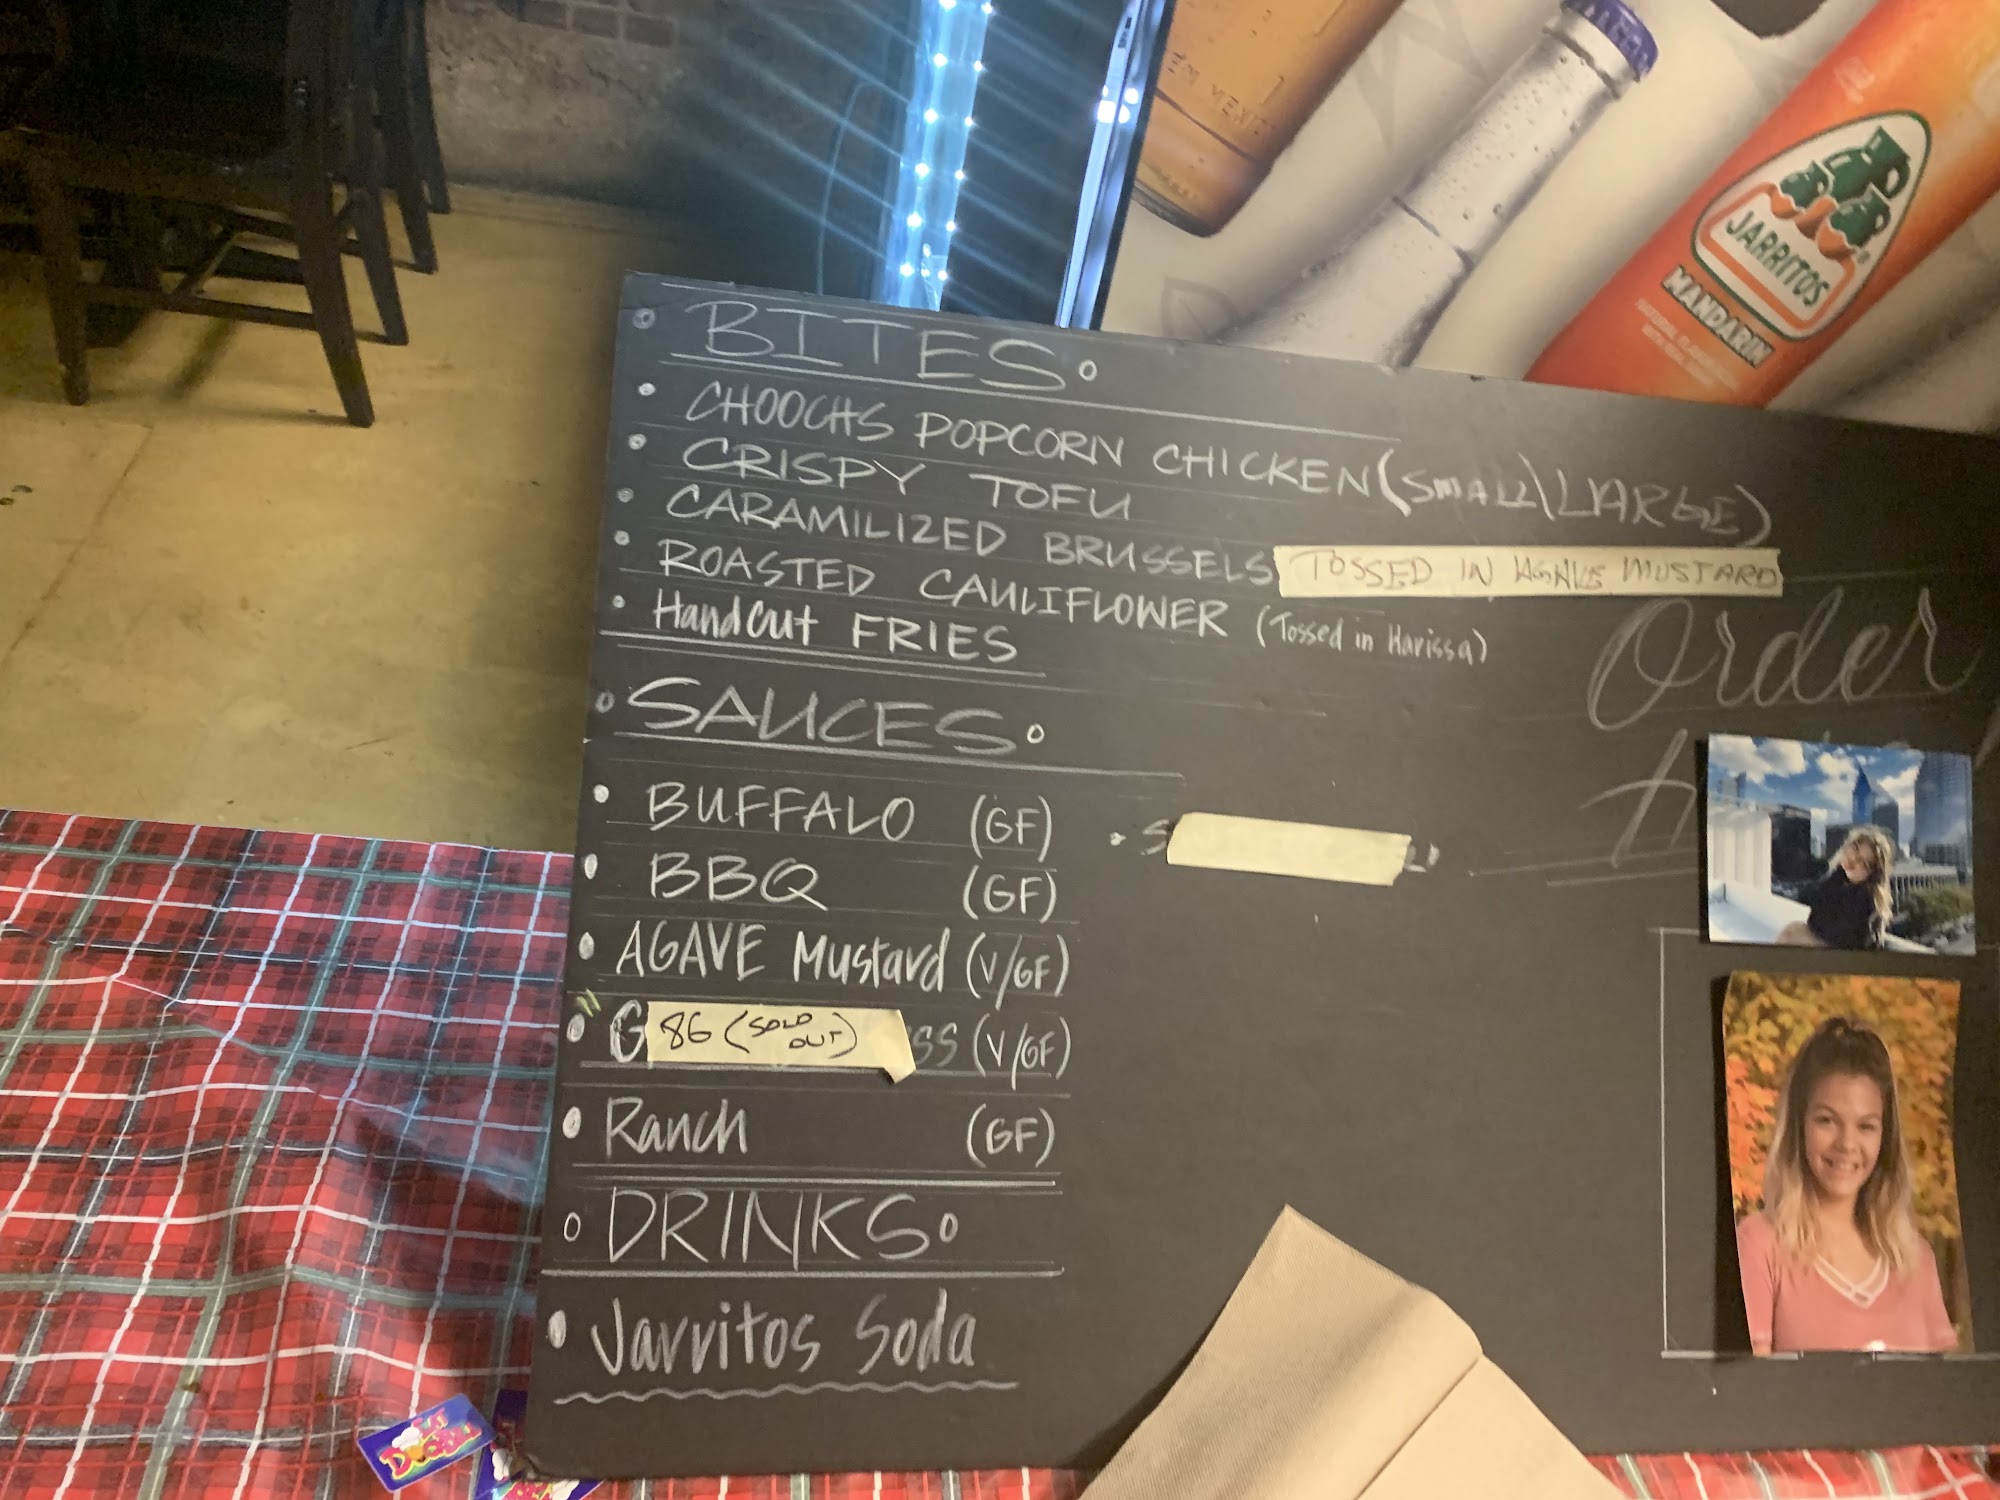 BITES
CHOOCHS POPCORN CHICKEN (SMALL\LARGE)
CRISPY TOFU
CARAMILIZED BRUSSELS TOSSED IN AGAVE MUSTARD
ROASTED CAULIFLOWER (Tossed in Harissa)
Handcut FRIES
Order
SAUCES
BUFFALO (GF)
BBQ (GF)
AGAVE Mustard (V/GF)
86 (SOLD OUT) (V/GF)
Ranch (GF)
DRINKS
Jarritos Soda
JARRITOS
MANDARIN